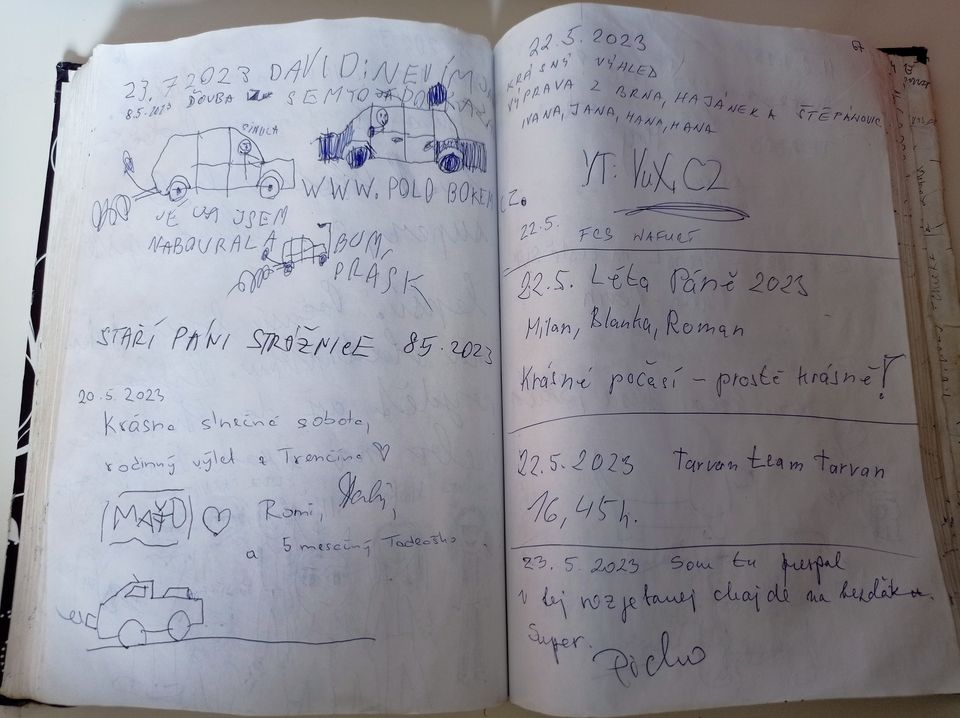 23.7 2023 DAVID: NEVÍM
8.5.2023 ĎOUBA SEM TO
WWW.POLO BOREM
CZ.
VĚ VA JSEM
NABOURALA BUM,
PRÁSK
STAŘÍ PÁNI STRÁŽNICE 8.5.2023
20.5.2023
Krásna slnečná sobota,
rodinný výlet z Trenčína ♡
MAŤO ♡ Romi,
a 5 mesačný Tadeáško
22.5.2023
KRÁSNÝ VÝHLED
VÝPRAVA Z BRNA, HAJÁNEK A ŠTĚPÁNOVIC
IVANA, JANA, HANA, HANA
YT: VUX, CZ
22.5. FCS WAFURT
22.5. Léta Páně 2023
Milan, Blanka, Roman
Krásné počasí – prostě krásně!
22.5.2023 tarvan team tarvan
16,45h.
23.5.2023 Som tu prespal
v tej rozjetanej chajde na
Super.